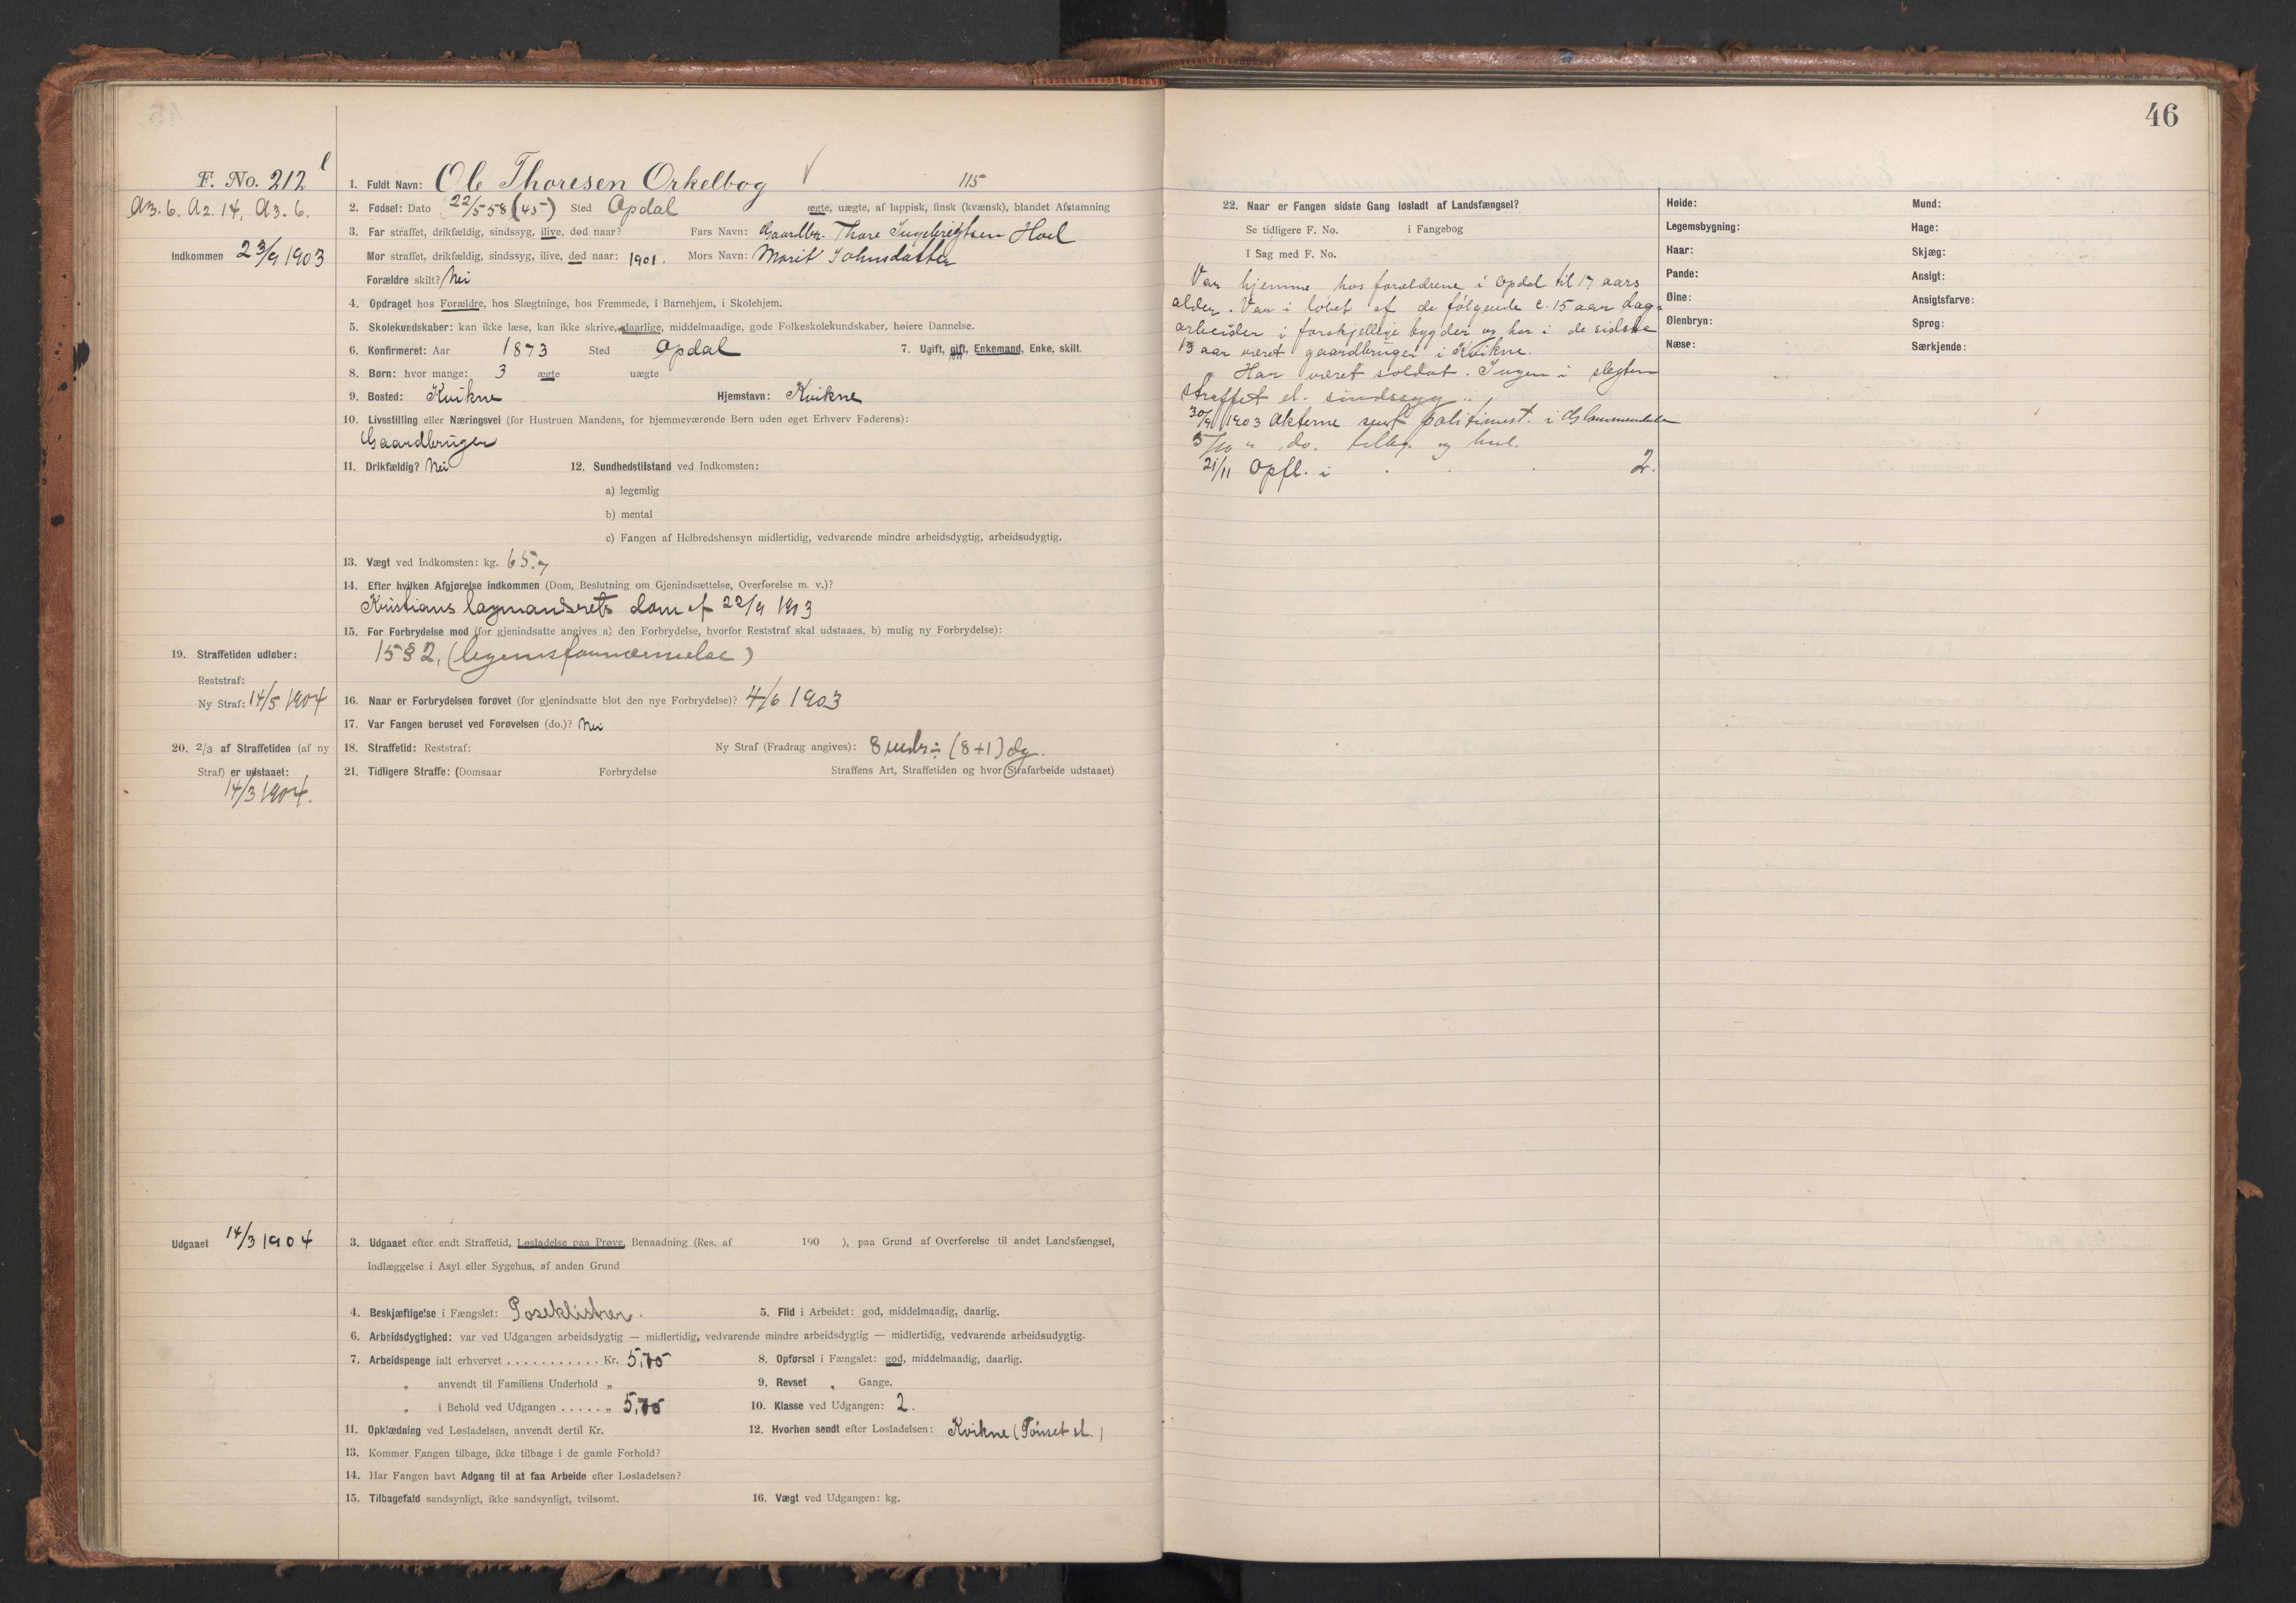 46
F. No. 212
A3. 6. A2. 14, A3. 6.
Indkommen 23/9 1903
1. Fuldt Navn: Ole Thoresen Orkelbog 115
2. Fødsel: Dato 22/5 58 (45) Sted Opdal ægte, uægte, af lappisk, finsk (kvænsk), blandet Afstamning
3. Far straffet, drikfældig, sindssyg, ilive, død naar? Fars Navn: Gaardbr. Thore Ingebrigtsen Hoel
Mor straffet, drikfældig, sindssyg, ilive, død naar: 1901. Mors Navn: Marit Johnsdatter
Forældre skilt? Nei
4. Opdraget hos Forældre, hos Slægtninge, hos Fremmede, i Barnehjem, i Skolehjem.
5. Skolekundskaber: kan ikke læse, kan ikke skrive, daarlige, middelmaadige, gode Folkeskolekundskaber, høiere Dannelse.
6. Konfirmeret: Aar 1873 Sted Opdal 7. Ugift, gift, Enkemand, Enke, skilt.
8. Børn: hvor mange: 3 ægte uægte
9. Bosted: Kvikne Hjemstavn: Kvikne
10. Livsstilling eller Næringsvei (for Hustruen Mandens, for hjemmeværende Børn uden eget Erhverv Faderens):
Gaardbruger
11. Drikfældig? Nei 12. Sundhedstilstand ved Indkomsten:
a) legemlig
b) mental
c) Fangen af Helbredshensyn midlertidig, vedvarende mindre arbeidsdygtig, arbeidsudygtig.
13. Vægt ved Indkomsten: kg. 65.7
14. Efter hvilken Afgjørelse indkommen (Dom, Beslutning om Gjenindsættelse, Overførelse m. v.)?
Kristians lagmandsrets dom af 22/9 1903
15. For Forbrydelse mod (for gjenindsatte angives a) den Forbrydelse, hvorfor Reststraf skal udstaaes, b) mulig ny Forbrydelse):
15 § 2, (legemsfornærmelse)
19. Straffetiden udløber:
Reststraf:
Ny Straf: 14/5 1904
16. Naar er Forbrydelsen forøvet (for gjenindsatte blot den nye Forbrydelse)? 4/6 1903
17. Var Fangen beruset ved Forøvelsen (do.)? Nei
20. 2/3 af Straffetiden (af ny
Straf) er udstaaet:
14/3 1904.
18. Straffetid: Reststraf: Ny Straf (Fradrag angives): 8 mdr ÷ (8+1) dg.
21. Tidligere Straffe: (Domsaar Forbrydelse Straffens Art, Straffetiden og hvor Strafarbeide udstaaet)
Udgaaet 14/3 1904
3. Udgaaet efter endt Straffetid, Løsladelse paa Prøve, Benaadning (Res. af 190 ), paa Grund af Overførelse til andet Landsfængsel,
Indlæggelse i Asyl eller Sygehus, af anden Grund
4. Beskjæftigelse i Fængslet: Poseklistrer. 5. Flid i Arbeidet: god, middelmaadig, daarlig.
6. Arbeidsdygtighed: var ved Udgangen arbeidsdygtig — midlertidig, vedvarende mindre arbeidsdygtig — midlertidig, vedvarende arbeidsudygtig.
7. Arbeidspenge ialt erhvervet . . . . . . . . . . . Kr. 5,75 8. Opførsel i Fængslet: god, middelmaadig, daarlig.
„ anvendt til Familiens Underhold „ 9. Revset „ Gange.
„ i Behold ved Udgangen . . . . . „ 5,75 10. Klasse ved Udgangen: 2.
11. Opklædning ved Løsladelsen, anvendt dertil Kr. 12. Hvorhen sendt efter Løsladelsen: Kvikne (Tønset st.)
13. Kommer Fangen tilbage, ikke tilbage i de gamle Forhold?
14. Har Fangen havt Adgang til at faa Arbeide efter Løsladelsen?
15. Tilbagefald sandsynligt, ikke sandsynligt, tvilsomt. 16. Vægt ved Udgangen: kg.
22. Naar er Fangen sidste Gang løsladt af Landsfængsel?
Se tidligere F. No. i Fangebog
I Sag med F. No.
Var hjemme hos forældrene i Opdal til 17 aars
alder. Var i løbet af de følgende c. 15 aar dag-
arbeider i forskjellige bygder og har i de sidste
13 aar været gaardbruger i Kvikne.
Har været soldat. Ingen i slegten
straffet el. sindssyg.
30/9 1903 Akterne sendt politimest. i Glommendalen
5/10 " do. tilbg. og hul.
21/11 Opfl. i 2.
Høide: Mund:
Legemsbygning: Hage:
Haar: Skjæg:
Pande: Ansigt:
Øine: Ansigtsfarve:
Øienbryn: Sprog:
Næse: Særkjende: